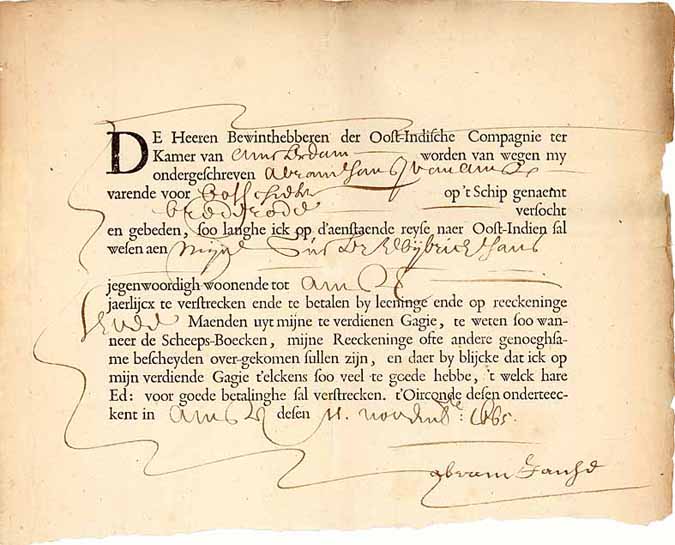 DE Heeren Bewinthebberen der Oost-Indische Compagnie ter
Kamer van Amsterdam worden van wegen my
ondergeschreven Abram Jans van Ams
varende voor op't Schip genaemt
brederode versocht
en gebeden, soo langhe ick op d'aenstaende reyse naer Oost-Indien sal
wesen aen Mijn
jegenwoordigh woonende tot AmS
jaerlijcx te verstrecken ende te betalen by leeninge ende op reeckeninge
Maenden uyt mijne te verdienen Gagie, te weten soo wan-
neer de Scheeps-Boecken, mijne Reeckeninge ofte andere genoeghsa-
me bescheyden over-gekomen sullen zijn, en daer by blijcke dat ick op
mijn verdiende Gagie t'elckens soo veel te goede hebbe, 't welck hare
Ed: voor goede betalinghe sal verstrecken. t'Oirconde desen onderteec-
kent in AmS desen 11. novemb: 1665
abram Janse